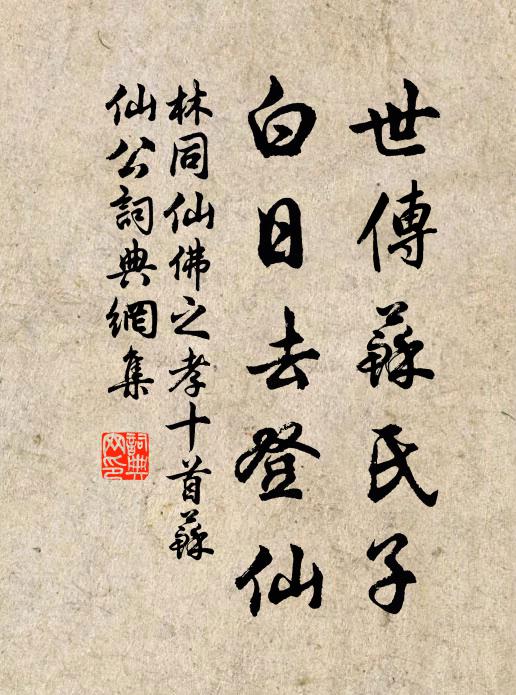 世傳蘇氏子
白日去登仙
林同仙佛之孝十首蘇
仙公詞典網集
詞典網印